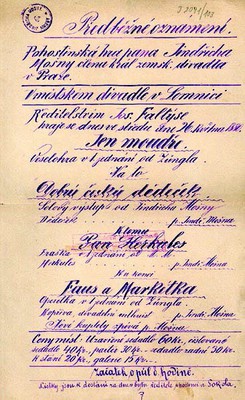 Předběžné oznámení.
Pohostinská hra pana Jindřicha
Mošny člena král. zemsk. divadla
v Praze.
V místském divadle v Lomnici
Ředitelstvím Jos. Faltyse
hraje se dnes ve středu dne 26. května
Jen moudře
v 1 jednání od Züngla.
Na to
český dědeček
Solový výstup od Jindřicha Mošny
Dědeček p. Jindř. Mošna
K tomu
Pan Herkules
Fraška v 1 jednání od
Herkules p. Jindř. Mošna
Na konci
Faus a Markitka
Opereta v 1 jednání od Züngla.
Kopřiva, divadelní p. Jindř. Mošna
Nové kuplety zpívá p. Mošna.
Ceny míst: Uzavřené sedadlo 60 kr., číslované
sedadlo 40 kr., parter 30 kr. sedadlo zadní 30 kr.
k stání 20 kr., galerie 15 kr.
Začátek o půl 8. hodině.
Lístky jsou k dostání